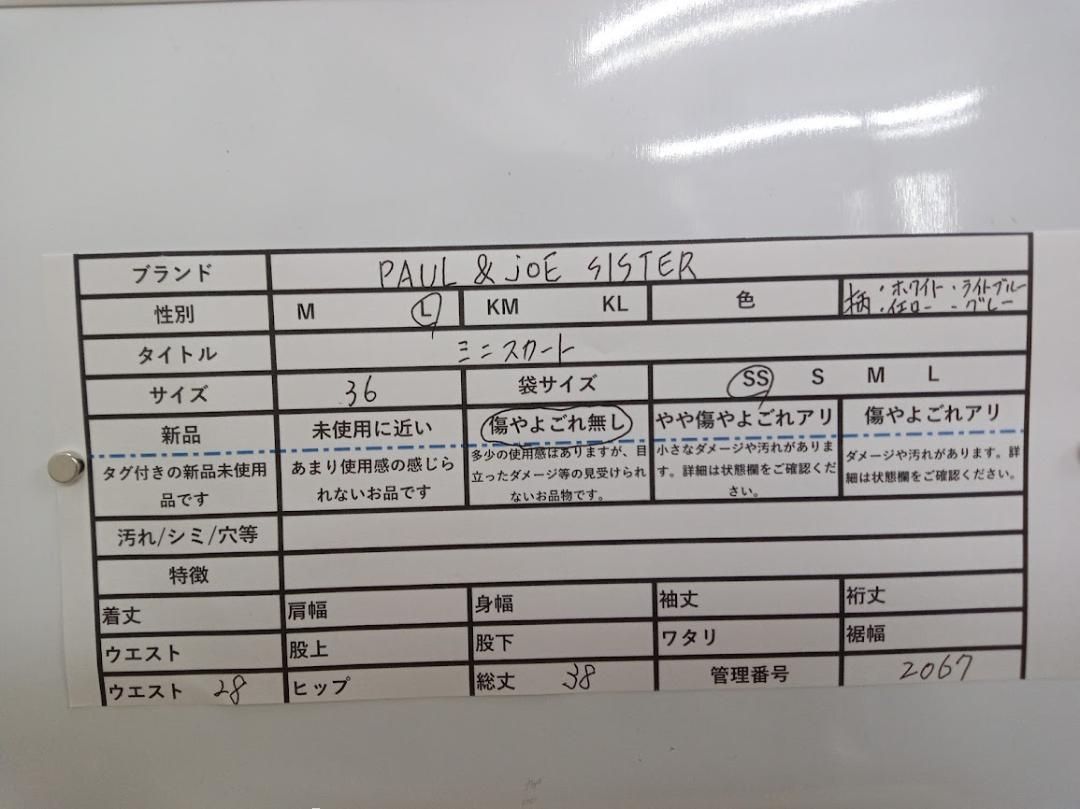 ブランド PAUL & JOE SISTER
性別 M L KM KL 色 柄・ホワイト・ライトブルー
・イエロー・グレー
タイトル ミニスカート
サイズ 36 袋サイズ SS S M L
新品 未使用に近い 傷やよごれ無し やや傷やよごれアリ 傷やよごれアリ
タグ付きの新品未使用
品です
あまり使用感の感じら
れないお品です
多少の使用感はありますが、目
立ったダメージ等の見受けられ
ないお品物です。
小さなダメージや汚れがありま
す。詳細は状態欄をご確認くだ
さい。
ダメージや汚れがあります。詳
細は状態欄をご確認ください。
汚れ/シミ/穴等
特徴
着丈 肩幅 身幅 袖丈 裄丈
ウエスト 股上 股下 ワタリ 裾幅
ウエスト 28 ヒップ 総丈 38 管理番号 2067